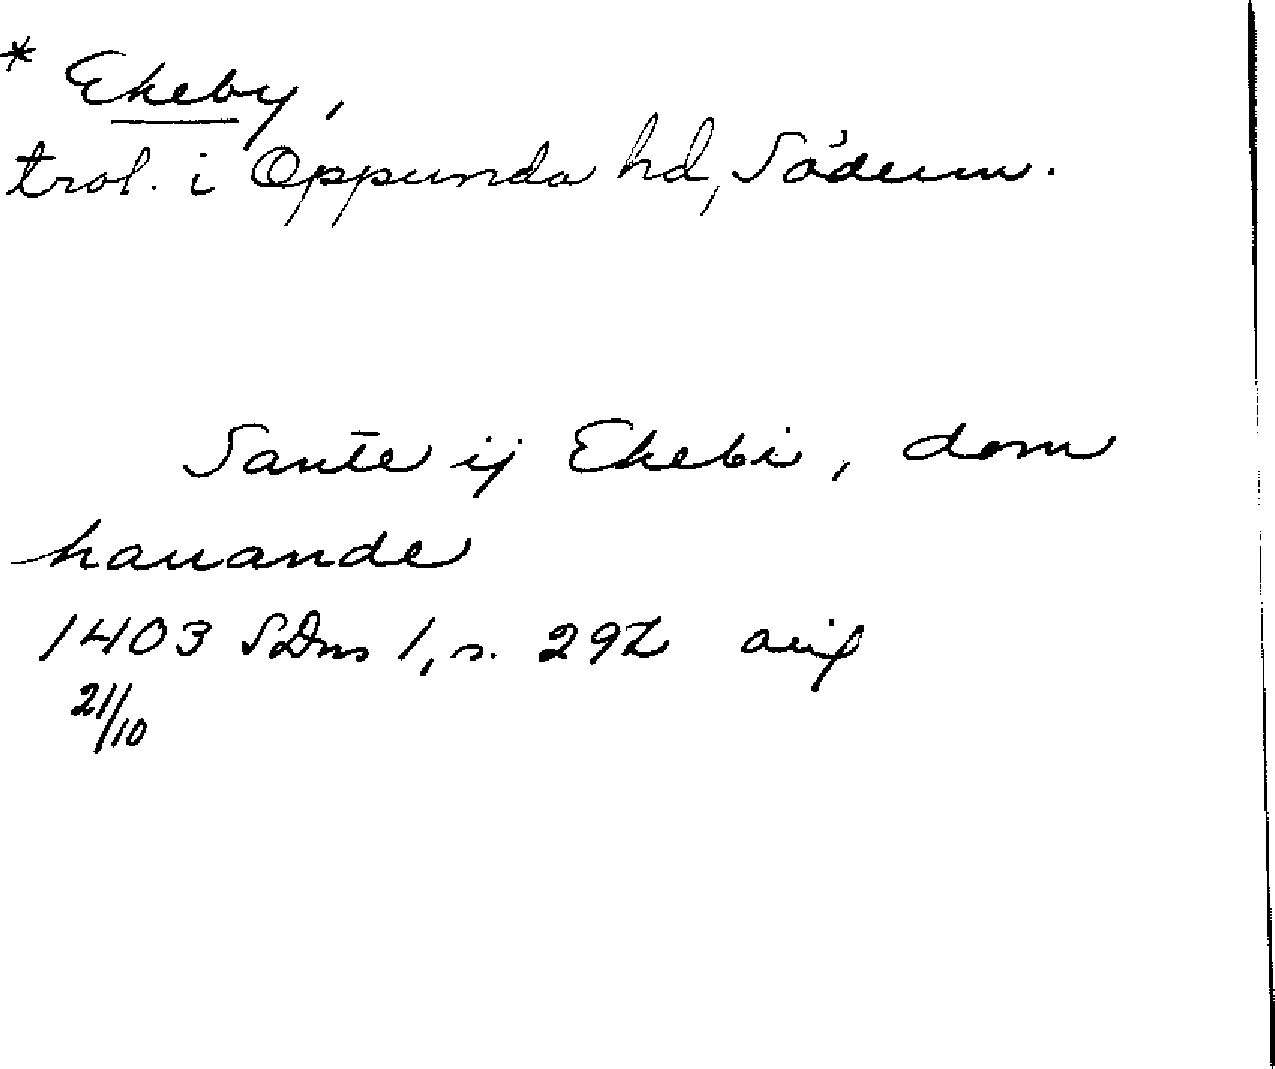 * Ekeby,
trol. i Oppunda hd, Söderm.
Sante ij Ekebi, dom
hauande
1403 SDns 1, s. 292 avif
21/10